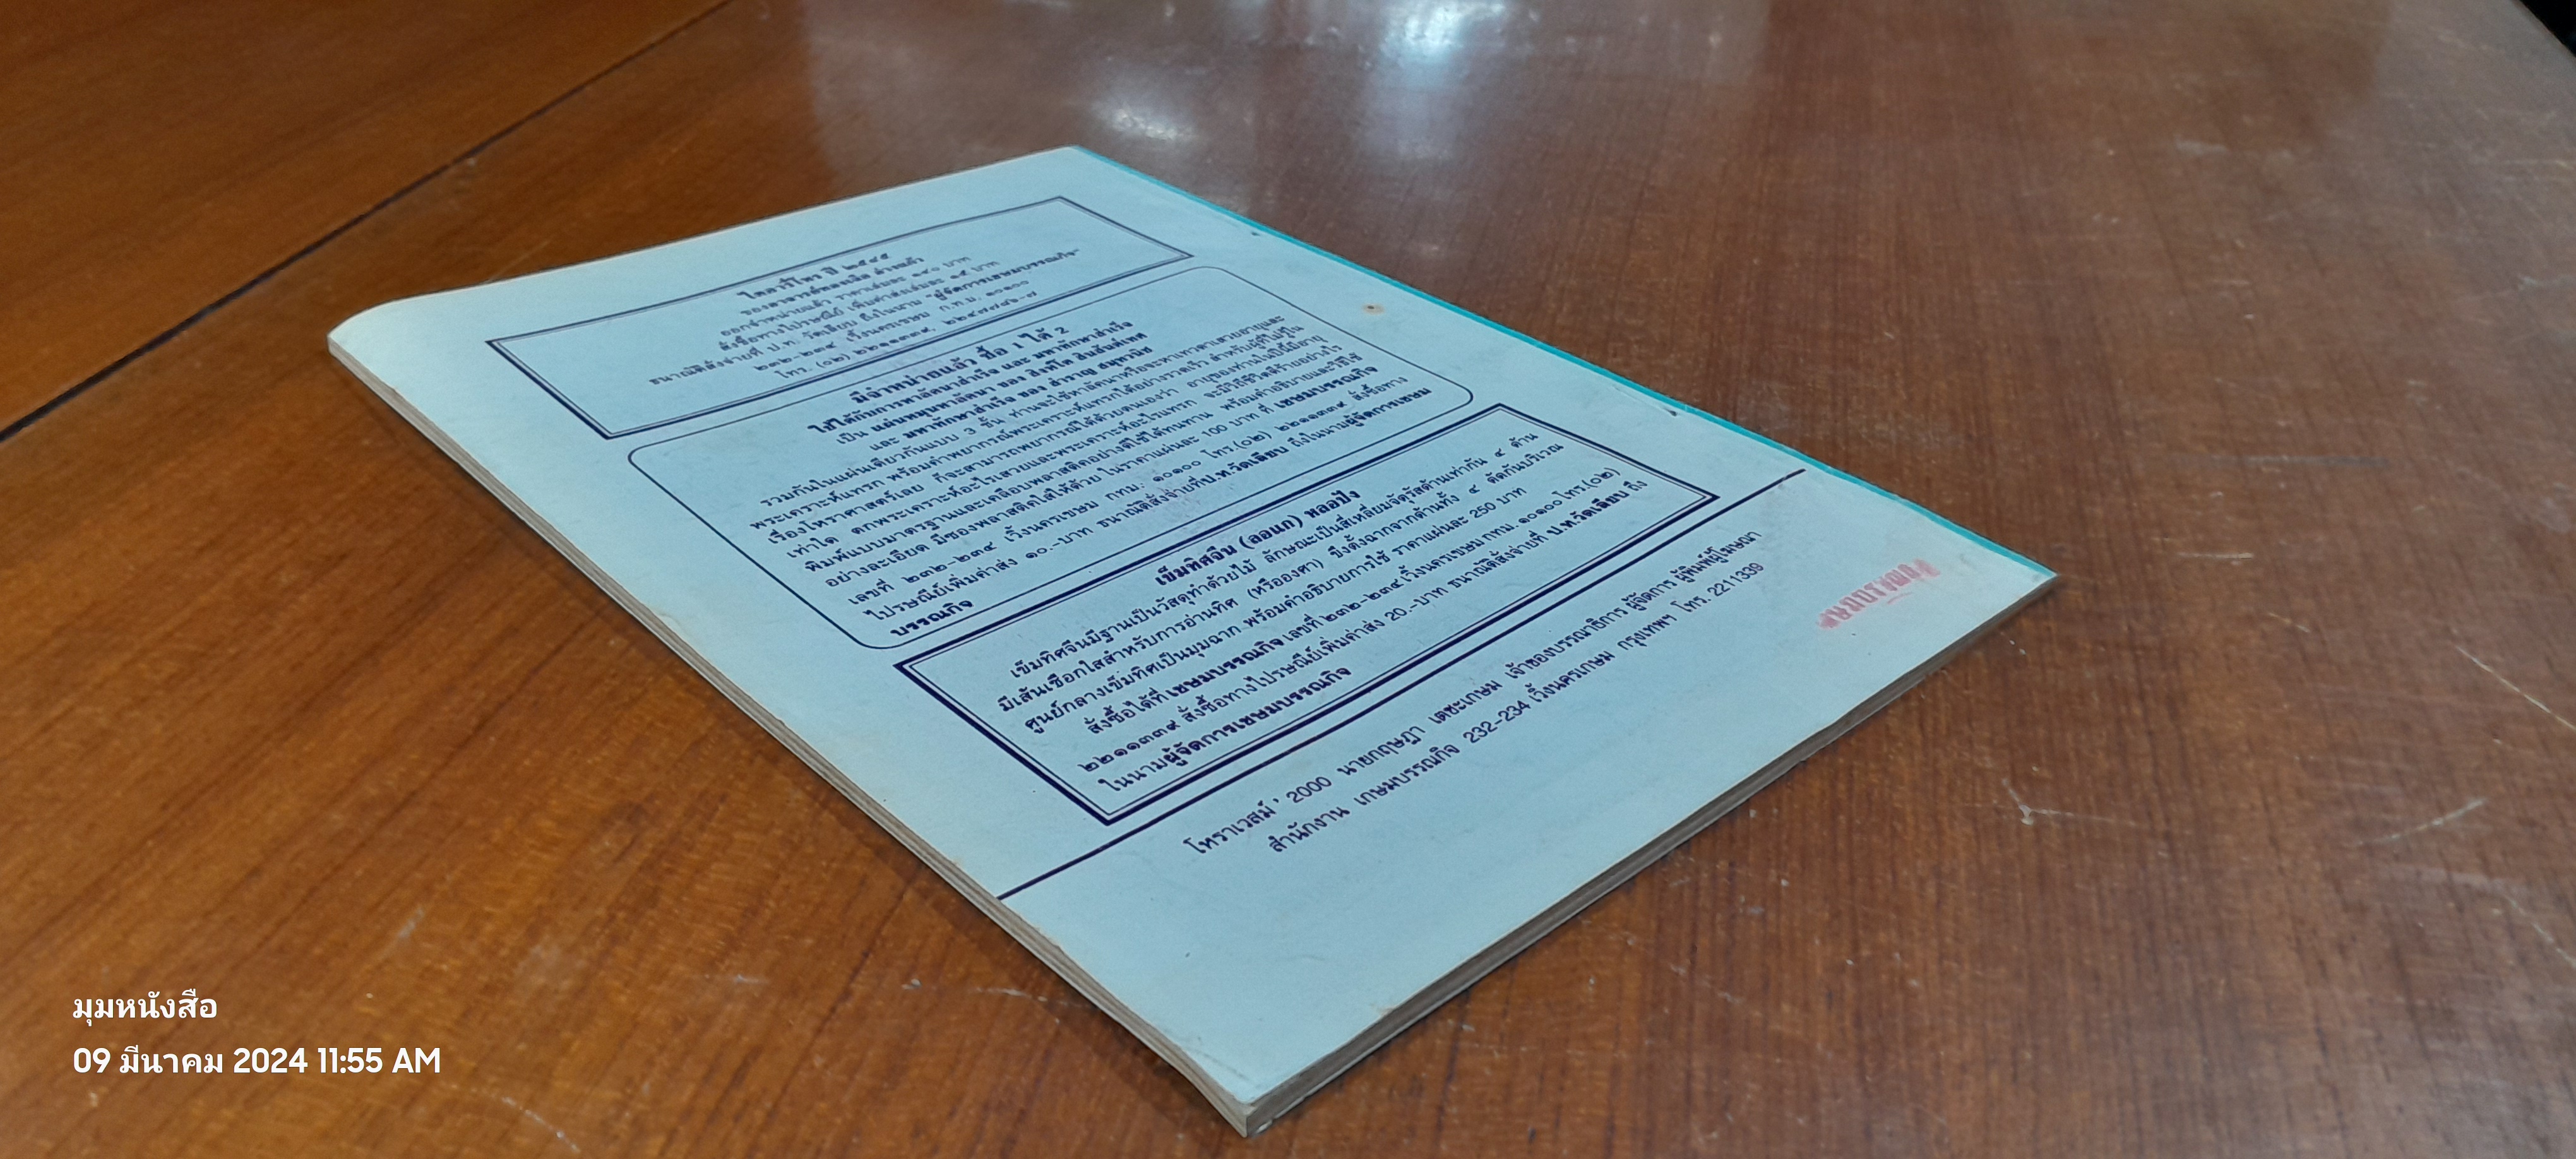 ไดอารี่โหร ปี ๒๕๔๕
ของอาจารย์ทองเจือ อ่างแก้ว
ออกจำหน่ายแล้ว ราคาเล่มละ ๑๔๐ บาท
สั่งซื้อทางไปรษณีย์ เพิ่มค่าส่งเล่มละ ๑๕ บาท
ธนาณัติสั่งจ่ายที่ ป.ท. วัดเลียบ ถึงในนาม "ผู้จัดการเขษมบรรณกิจ"
๒๓๒-๒๓๔ เวิ้งนครเขษม ก.ท.ม. ๑๐๑๐๐
โทร. (๐๒) ๒๒๑๑๓๓๙,
มีจำหน่ายแล้ว ซื้อ 1 ได้ 2
ใช้ได้กับการหาลัคนาสำเร็จ และ มหาทักษาสำเร็จ
เป็น แผ่นหมุนหาลัคนา ของ สิงห์โต สุริยาอารักษ์
และ มหาทักษาสำเร็จ ของ สำราญ สมุทวานิช
รวมกันในแผ่นเดียวกันแบบ 3 ชั้น ท่านจะใช้หาลัคนาหรือจะหาเทวดาเสวยอายุและ
พระเคราะห์แทรก พร้อมคำพยากรณ์พระเคราะห์แทรกได้อย่างรวดเร็ว สำหรับผู้ที่ไม่รู้ใน
เรื่องโหราศาสตร์เลย ก็จะสามารถพยากรณ์ได้ด้วยตนเองว่า อายุของท่านในปีนี้มีอายุ
เท่าใด ตกพระเคราะห์อะไรเสวยและพระเคราะห์อะไรแทรก จะมีวิถีชีวิตดีร้ายอย่างไร
พิมพ์แบบมาตรฐานและเคลือบพลาสติคอย่างดีใช้ได้ทนทาน พร้อมคำอธิบายและวิธีใช้
อย่างละเอียด มีซองพลาสติคใส่ให้ด้วย ในราคาแผ่นละ 100 บาท ที่ เขษมบรรณกิจ
เลขที่ ๒๓๒-๒๓๔ เวิ้งนครเขษม กทม. ๑๐๑๐๐ โทร.(๐๒) ๒๒๑๑๓๓๙ สั่งซื้อทาง
ไปรษณีย์เพิ่มค่าส่ง ๑๐.-บาท ธนาณัติสั่งจ่ายที่ป.ท.วัดเลียบ ถึงในนามผู้จัดการเขษม
บรรณกิจ
เข็มทิศจีน (ลอแก) หลอปัง
เข็มทิศจีนมีฐานเป็นวัสดุทำด้วยไม้ ลักษณะเป็นสี่เหลี่ยมจัตุรัสด้านเท่ากัน ๔ ด้าน
มีเส้นเชือกใสสำหรับการอ่านทิศ (หรือองศา) ขึงตั้งฉากจากด้านทั้ง ๔ ตัดกันบริเวณ
ศูนย์กลางเข็มทิศเป็นมุมฉาก พร้อมคำอธิบายการใช้ ราคาแผ่นละ 250 บาท
สั่งซื้อได้ที่ เขษมบรรณกิจ เลขที่ ๒๓๒-๒๓๔ เวิ้งนครเขษม กทม. ๑๐๑๐๐ โทร.(๐๒)
๒๒๑๑๓๓๙ สั่งซื้อทางไปรษณีย์เพิ่มค่าส่ง 20.-บาท ธนาณัติสั่งจ่ายที่ ป.ท.วัดเลียบ ถึง
ในนามผู้จัดการเขษมบรรณกิจ
โหราเวสม์ ' 2000 นายกฤษฎา เดชะเกษม เจ้าของบรรณาธิการ ผู้จัดการ ผู้พิมพ์ผู้โฆษณา
สำนักงาน เกษมบรรณกิจ 232-234 เวิ้งนครเกษม กรุงเทพฯ โทร. 2211339
มุมหนังสือ
09 มีนาคม 2024 11:55 AM